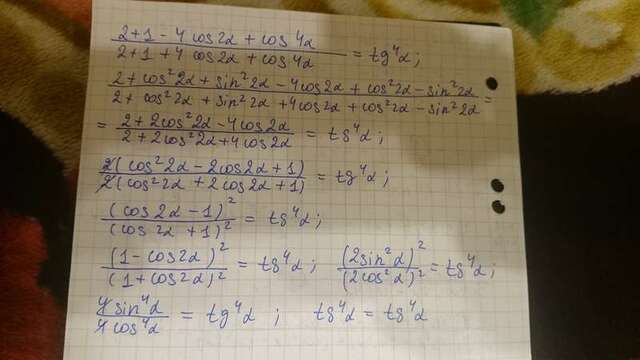 (2+1-4cos2α+cos4α)/(2+1+4cos2α+cos4α) = tg⁴α;
(2+cos²2α+sin²2α-4cos2α+cos²2α-sin²2α)/(2+cos²2α+sin²2α+4cos2α+cos²2α-sin²2α) =
= (2+2cos²2α-4cos2α)/(2+2cos²2α+4cos2α) = tg⁴α;
2(cos²2α-2cos2α+1)/2(cos²2α+2cos2α+1) = tg⁴α;
(cos2α-1)²/(cos2α+1)² = tg⁴α;
(1-cos2α)²/(1+cos2α)² = tg⁴α; (2sin²α)²/(2cos²α)² = tg⁴α;
4sin⁴α/4cos⁴α = tg⁴α; tg⁴α = tg⁴α